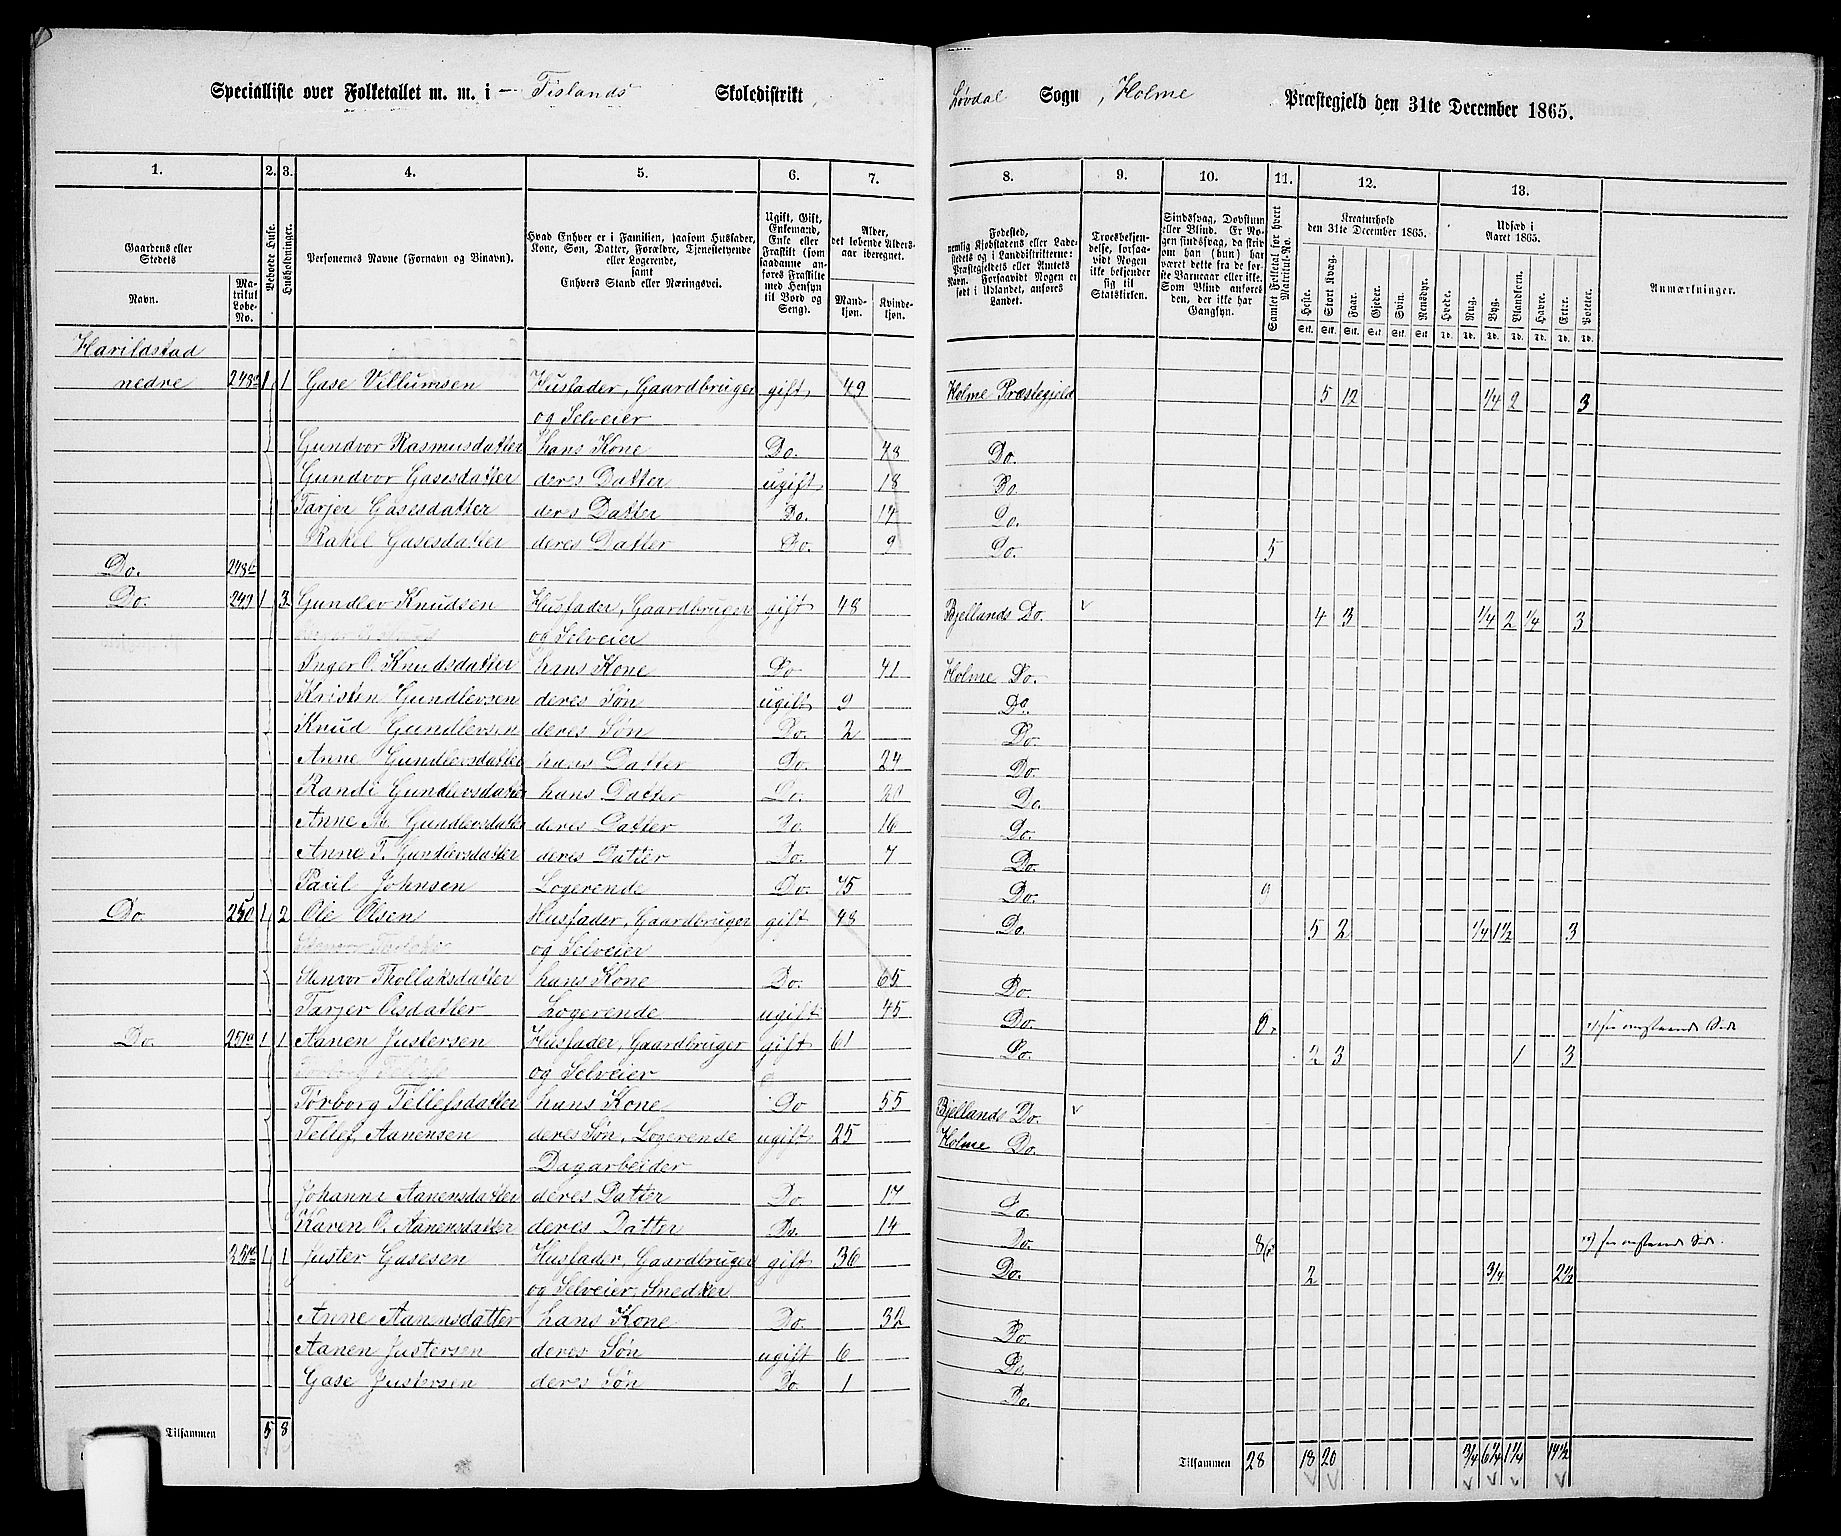 Specialliste over Folketallet m. m. i Tislands Skoledistrikt,
Løvdal Sogn, Holme Præstegjeld den 31te December 1865.
1. 2. 3. 4. 5. 6. 7.
8. 9. 10. 8. 11. 12. 13.
Gaardens eller Stedets
Navn.
Matrikul Løbe-No.
Beboede Huse.
Husholdninger.
Personernes Navne (Fornavn og Binavn).
Hvad Enhver er i Familien, saasom Husfader, Kone, Søn, Datter, Forældre, Tjenestetyende eller Logerende,
samt
Enhvers Stand eller Næringsvei.
Ugift, Gift, Enkemand, Enke eller Fraskilt (som saadanne anføres Fraskilte med Hensyn til Bord og Seng).
Alder, det løbende Aldersaar iberegnet.
Mandkjøn.
Kvindekjøn.
Fødested,
nemlig Kjøbstadens eller Ladestedets og i Landdistrikterne: Præstegjeldets eller Amtets Navn. Forsaavidt Nogen er født i Udlandet, anføres Landet.
Troesbekjendelse, forsaavidt Nogen ikke bekjender sig til Statskirken.
Sindssvag, Døvstum eller Blind. Er Nogen sindssvag, da skrives om han (hun) har været dette fra de første Barneaar eller ikke. Som Blind anføres den, der ikke har Gangsyn.
Samlet Folketal for hvert Matrikul-No.
Kreaturhold den 31te December 1865.
Heste. Stort Kvæg. Faar. Gjeder. Svin. Rensdyr.
Udsæd i Aaret 1865.
Hvede. Rug. Byg. Blandkorn. Havre. Erter. Poteter.
Anmærkninger.
Harildstad
nedre 248a 1 1 Gase Villumsen Husfader, Gaardbruger gift 49 Holme Præstegjeld 5 12 1/4 2 3
og Selveier
Gundvor Rasmusdatter hans Kone Do. 48 Do.
Gundvor Gasesdatter deres Datter ugift 18 Do.
Tarjer Gasesdatter deres Datter Do. 14 Do.
Rakel Gasesdatter deres Datter Do. 9 Do. 5
Do. 248b
Do. 249 1 3 Gundlev Knudsen Husfader, Gaardbruger gift 48 Bjellands Do. 4 3 1/4 2 1/4 3
og Selveier
Inger O. Knudsdatter hans Kone Do 41 Holme Do.
Kristen Gundlevsen deres Søn ugift 9 Do.
Knud Gundlevsen deres Søn Do. 2 Do.
Anne Gundlevsdatter hans Datter Do. 24 Do.
Randi Gundlevsdatter hans Datter Do. 20 Do.
Anne M. Gundlevsdatter deres Datter Do. 16 Do.
Anne T. Gundlevsdatter deres Datter Do. 7 Do.
Paul Johnsen Logerende Do. 45 Do. 9
Do. 250 1 2 Ole Olsen Husfader, Gaardbruger gift 48 Do. 5 2 1/4 1 1/2 3
og Selveier
Stenvor Thollaksdatter hans Kone Do. 65 Do.
Tarjer Olsdatter Logerende ugift 45 Do.
Do. 251a 1 1 Aanen Justersen Husfader, Gaardbruger gift 61 Do. 2 3 1 3
og Selveier
Torborg Tellefsdatter hans Kone Do 55 Bjellands Do.
Tellef Aanensen deres Søn, Logerende ugift 25 Holme Do.
Dagarbeider
Johanne Aanensdatter deres Datter Do. 17 Do.
Karen O. Aanensdatter deres Datter Do. 14 Do. 8
1 1 Juster Gasesen Husfader, Gaardbruger gift 36 Do. 2 3/4 2 1/2
og Selveier, Snedker
Anne Aanensdatter hans Kone Do. 32 Do.
Aanen Justersen deres Søn ugift 6 Do.
Gase Justersen deres Søn Do. 1 Do.
Tilsammen 5 8
Tilsammen 28 18 20 3/4 6 1/4 1 1/4 14 1/2